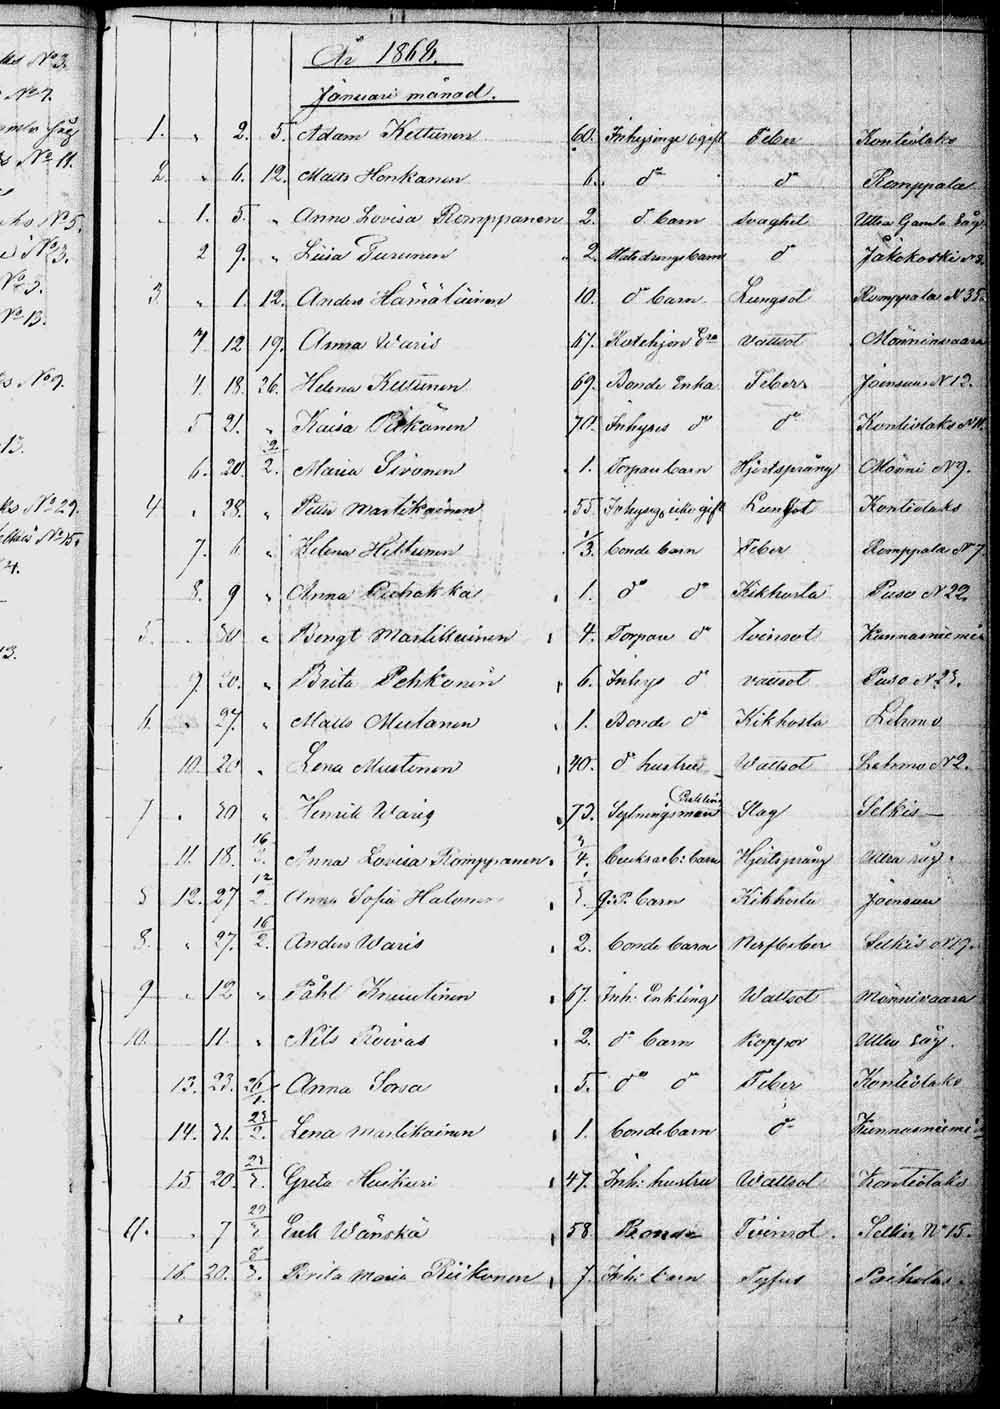 År 1868.
Januari månad.
1. " 2. 5. Adam Kettunen 60. Inhysinge ogift Feber Kontiolaks
2. " 6. 12. Matts Honkanen 6. do do Romppala
" 1. 5. " Anna Lovisa Romppanen 2. do barn svaghet Uttra Gamla Såg
2 9. " Liisa Turunen 2. barn do Jakokoski N 3.
3. " 1. 12. Anders Hämäläinen 10. do barn Lungsot Romppala N 35.
3 12 19. Anna Waris 67. Enka vattsot Mönninvaara
4. 18. 26. Helena Kettunen 69. Bonde Enka Feber Joensuu N 12.
5 21. " Kaisa Pitkänen 70. Inhyses do do Kontiolaks N 11.
6. 20. 2/2. Maria Sivonen 1. Torpare barn Hjertsprång Mönni N 9.
4 " 28. " Petter Martikainen 55. Inhysg. gift Lungsot Kontiolaks
7. 6. " Helena Hiltunen 1/3. bonde barn Feber Romppala N 7.
8. 9 " Anna Puhakka 1. do do Kikhosta Puso N 22.
5. " 30 " Bengt Martikainen 4. Torpare do tvinsot Kunnasniemi
9 20. " Brita Pehkonen 6. Inhys do vattsot Puso N 23.
6. " 27. " Matts Mutanen 1. Bonde do Kikhosta Lehmo
10. 20 " Lena Mustonen 40. do hustru Wattsot Lehmo N 2.
7 " 30 " Henrik Waris 73. Sytningsman Slag Selkis
11. 18. 16/3. Anna Lovisa Romppanen 3/4. barn Hjertsprång Uttra såg.
12. 27 12/2. Anna Sofia Halonen barn Kikhosta Joensuu
8. " 27. 16/2. Anders Waris 2. bonde barn Nerffeber Selkis N 19.
9 " 12 " Påhl Knuutinen 67. Inh: Enkling Wattsot Mönnivaara
10. 11. " Nils Roivas 2. do barn Koppor Uttra såg.
13. 23. 26/1. Anna Sorsa 5. do do Feber Kontiolaks
14. 31. 23/2. Lena Martikainen 1. bonde barn do Kunnasniemi
15 20. 23/3. Greta Huikuri 47. Inh: hustru Wattsot Kontiolaks
11. " 7 29/3 Erik Wänskä 58. Bonde Tvinsot. Selkis N 15.
16. 20. 8/3. Brita Maria Riikonen 7. Inh: barn Tyfus Paihola.